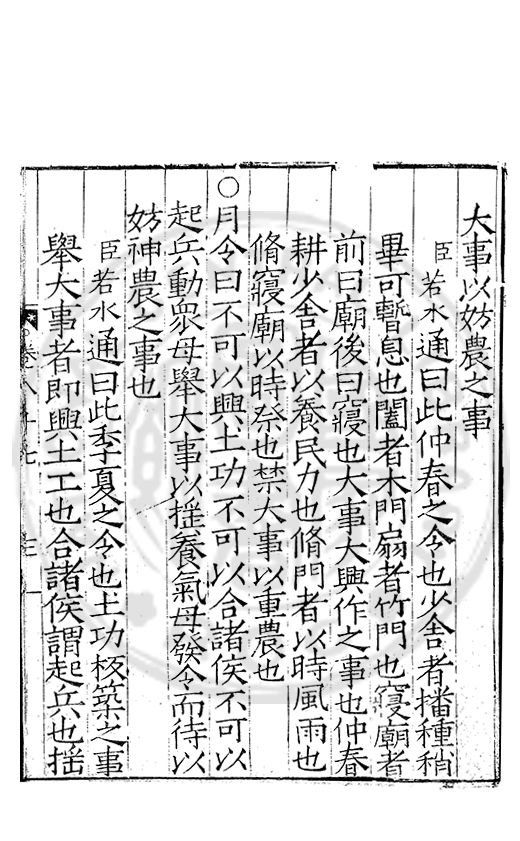 大事以妨農之事
臣若水通曰此仲春之令也少舍者播種稍
畢可暫息也闔者木門扇者竹門也寢廟者
前曰廟後曰寢也大事大興作之事也仲春
耕少舍者以養民力也脩門者以時風雨也
脩寢廟以時祭也禁大事以重農也
○月令曰不可以興土功不可以合諸侯不可以
起兵動衆毋舉大事以揺養氣毋發令而待以
妨神農之事也
臣若水通曰此季夏之令也土功板築之事
舉大事者即興土工也合諸侯謂起兵也揺
卷八十七